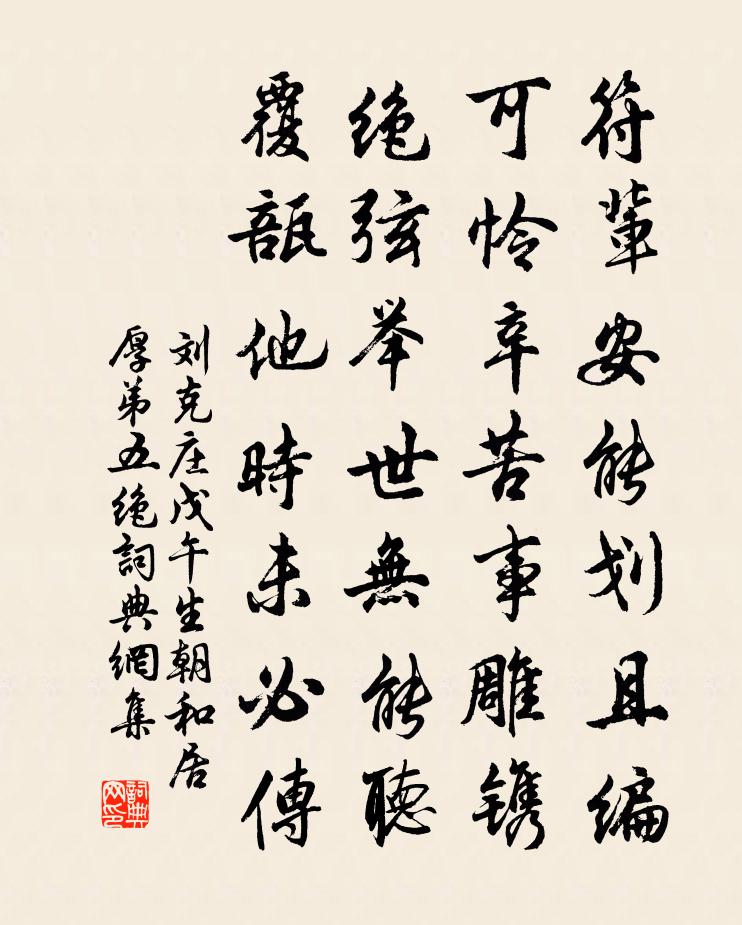 符輩安能划且编
可怜辛苦事雕镌
绝弦举世無能聽
覆瓿他時未必傳
刘克庄戊午生朝和居
厚弟五绝詞典網集
詞典网印